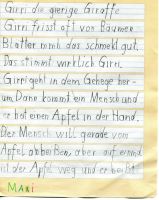 Girri die gierige Giraffe
Girri frisst oft von Baumen
Blätter mmm das schmekt gut.
Das stimmt wirklich Girri.
Girri geht in dem Gehege her-
um Dann kommt ein Mensch und
er hat einen Apfel in der Hand.
Der Mensch will gerade vom
Apfel abbeißen, aber auf einmal
ist der Apfel weg und er beißt
MARI